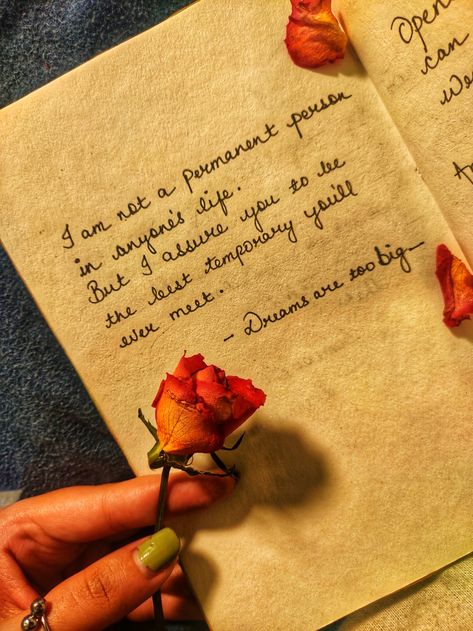 I am not a permanent person
in anyone's life.
But I assure you to be
the best temporary you'll
ever meet.
- Dreams are too big-
Open
can